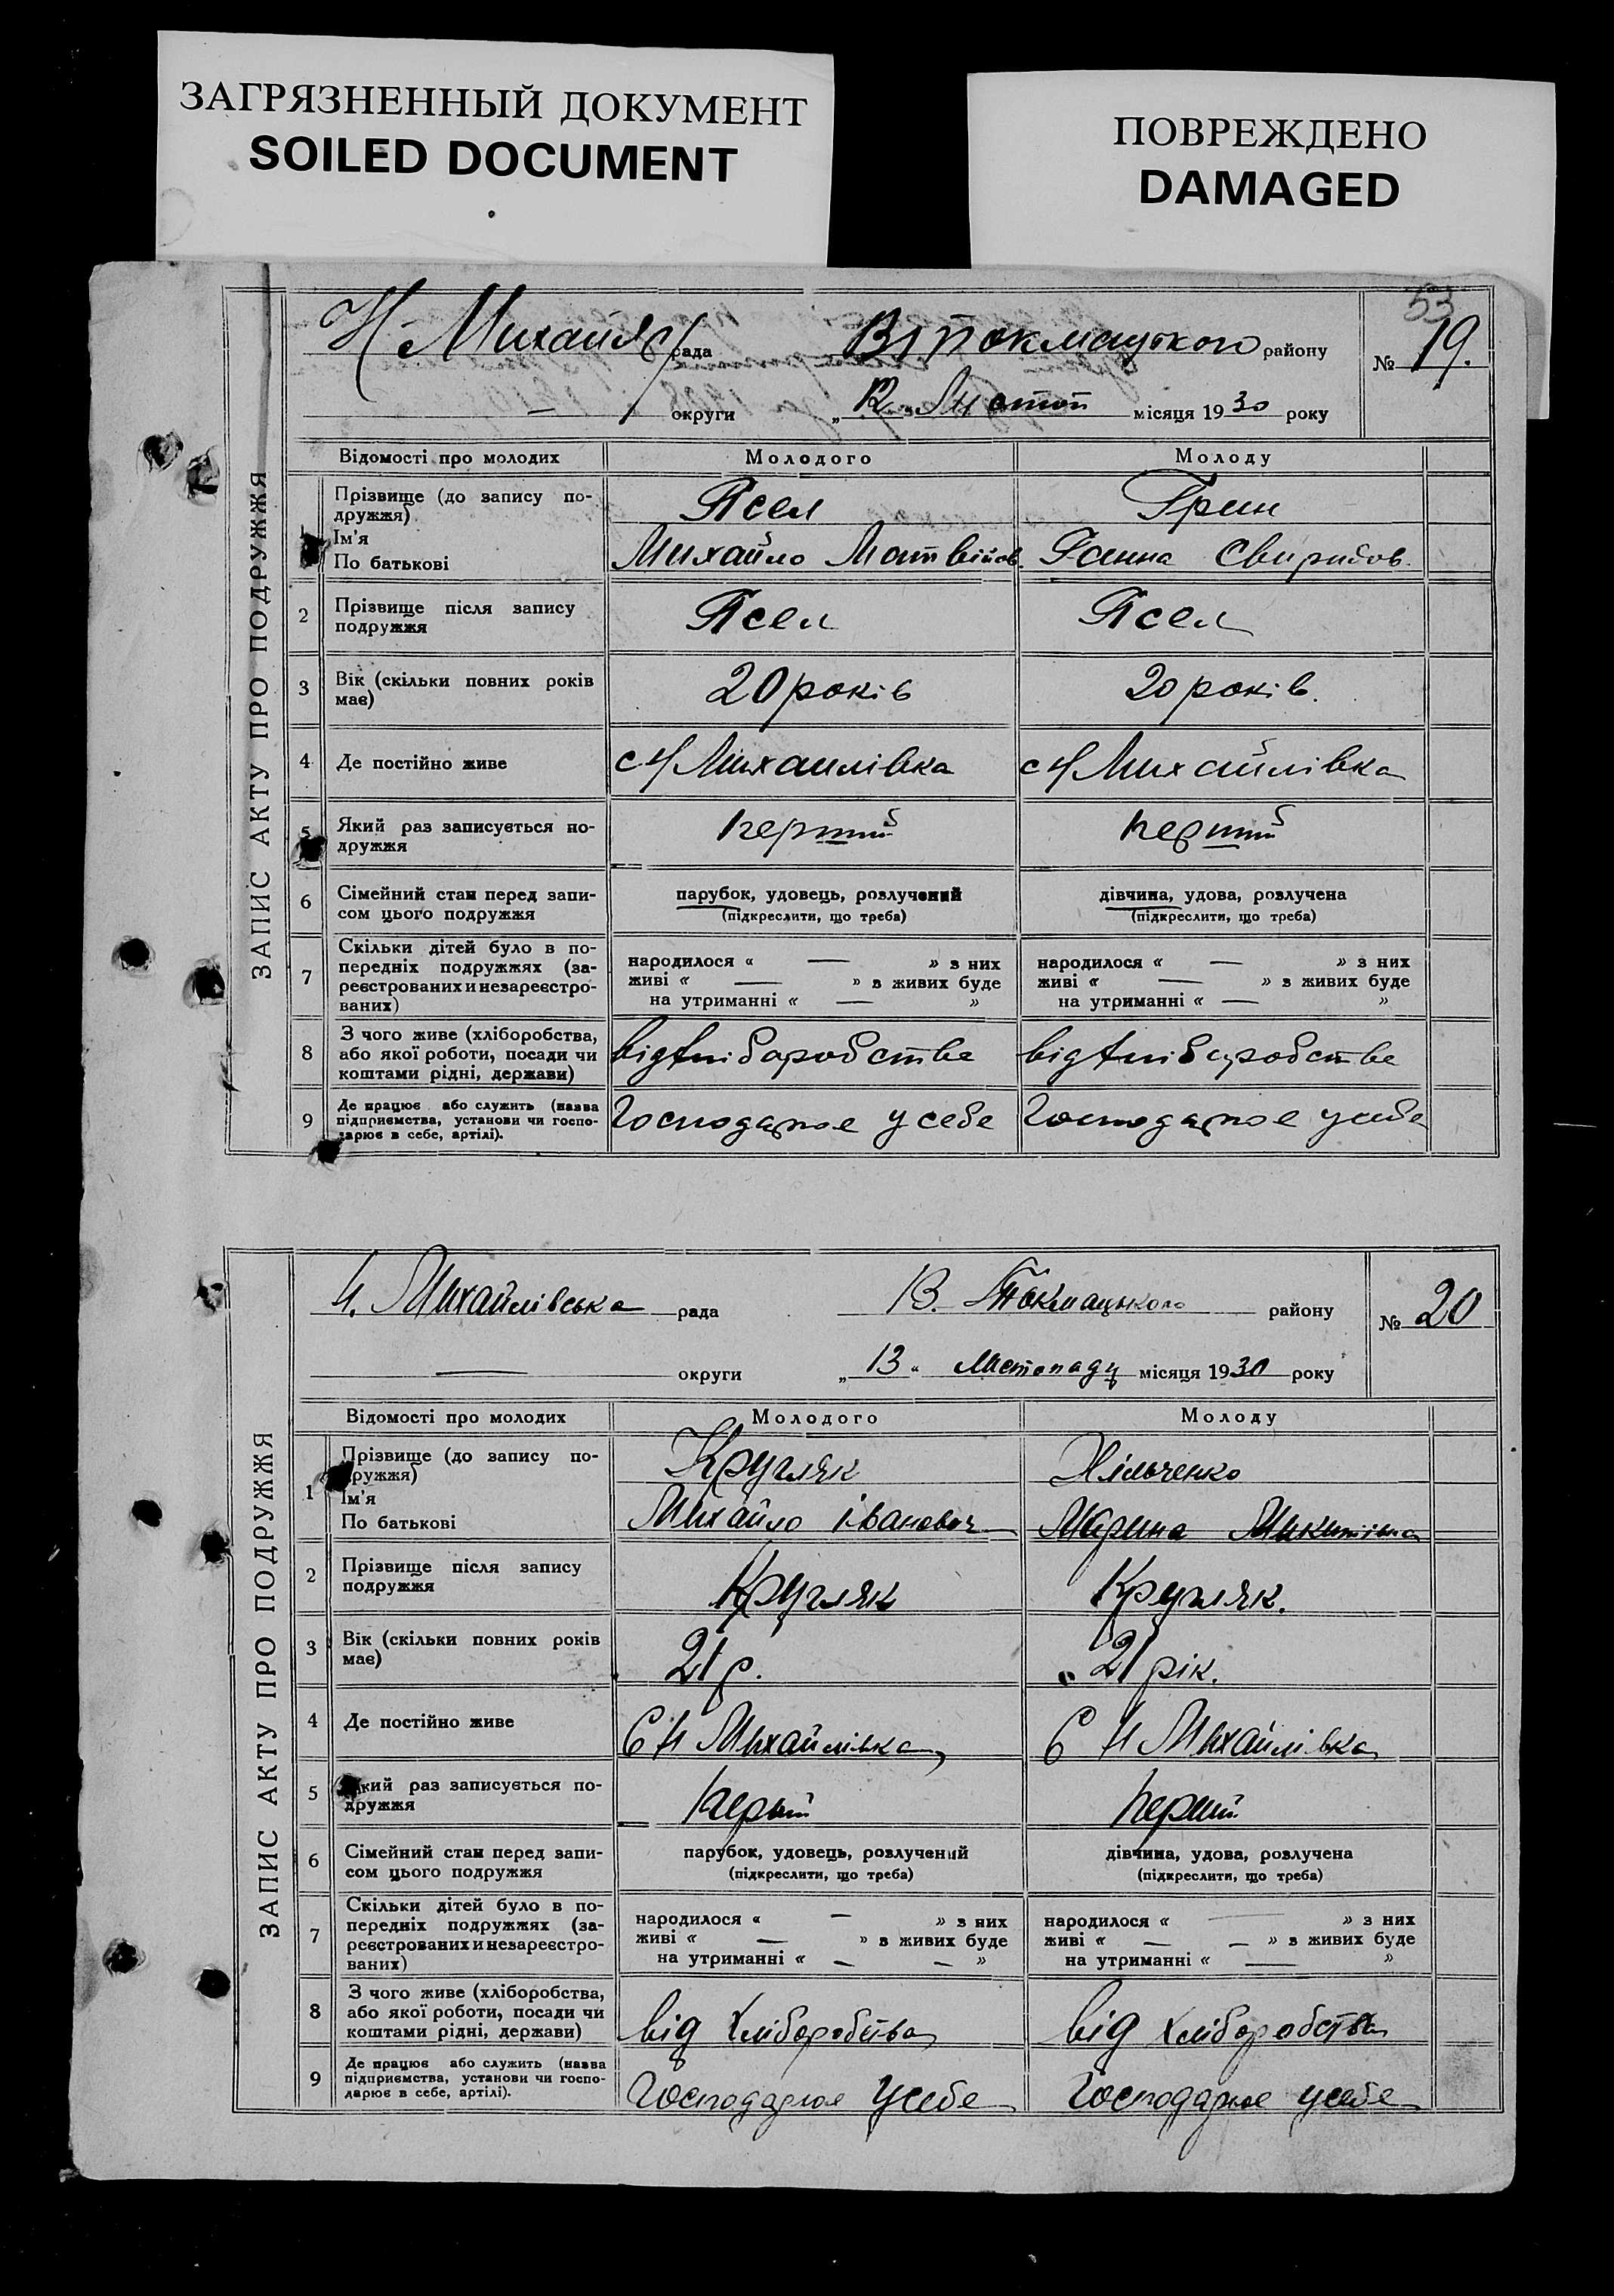 ЗАГРЯЗНЕННЫЙ ДОКУМЕНТ
SOILED DOCUMENT
ПОВРЕЖДЕНО
DAMAGED
53
ЗАПИС АКТУ ПРО ПОДРУЖЖЯ
Н Михайл с/рада Вл Токмацького району № 19.
— округи „12„ Листоп місяця 1930 року
Відомості про молодих Молодого Молоду
1 Прізвище (до запису по-
дружжя) Ясел Грин
Ім'я
По батькові Михайло Матвійов. Ганна Свиридов.
2 Прізвище після запису
подружжя Ясел Ясел
3 Вік (скільки повних років
має) 20 років 20 років.
4 Де постійно живе с Н Михайлівка с Н Михайлівка
5 Який раз записується по-
дружжя перший перший
6 Сімейний стан перед запи-
сом цього подружжя парубок, удовець, розлучений дівчина, удова, розлучена
(підкреслити, що треба) (підкреслити, що треба)
7 Скільки дітей було в по-
передніх подружжях (за-
реєстрованих и незареєстро-
ваних)
народилося « — » з них народилося « — » з них
живі « — » з живих буде живі « — » з живих буде
на утриманні « — » на утриманні « — »
8 З чого живе (хліборобства,
або якої роботи, посади чи
коштами рідні, держави) від хліборобства від хліборобства
9 Де працює або служить (назва
підприємства, установи чи госпо-
дарює в себе, артілі). Господарює у себе Господарює у себе
ЗАПИС АКТУ ПРО ПОДРУЖЖЯ
Н. Михайлівська рада В. Токмацького району № 20
— округи „13„ Листопаду місяця 1930 року
Відомості про молодих Молодого Молоду
1 Прізвище (до запису по-
дружжя) Кругляк Хільченко
Ім'я
По батькові Михайло Іванович Марина Микитівна
2 Прізвище після запису
подружжя Кругляк Кругляк.
3 Вік (скільки повних років
має) 21 р. 21 рік.
4 Де постійно живе С Н Михайлівка С Н Михайлівка
5 Який раз записується по-
дружжя Перший Перший
6 Сімейний стан перед запи-
сом цього подружжя парубок, удовець, розлучений дівчина, удова, розлучена
(підкреслити, що треба) (підкреслити, що треба)
7 Скільки дітей було в по-
передніх подружжях (за-
реєстрованих и незареєстро-
ваних)
народилося « — » з них народилося « — » з них
живі « — » з живих буде живі « — — » з живих буде
на утриманні « — — » на утриманні « — »
8 З чого живе (хліборобства,
або якої роботи, посади чи
коштами рідні, держави) від хліборобства від хліборобства
9 Де працює або служить (назва
підприємства, установи чи госпо-
дарює в себе, артілі). Господарює у себе Господарює у себе